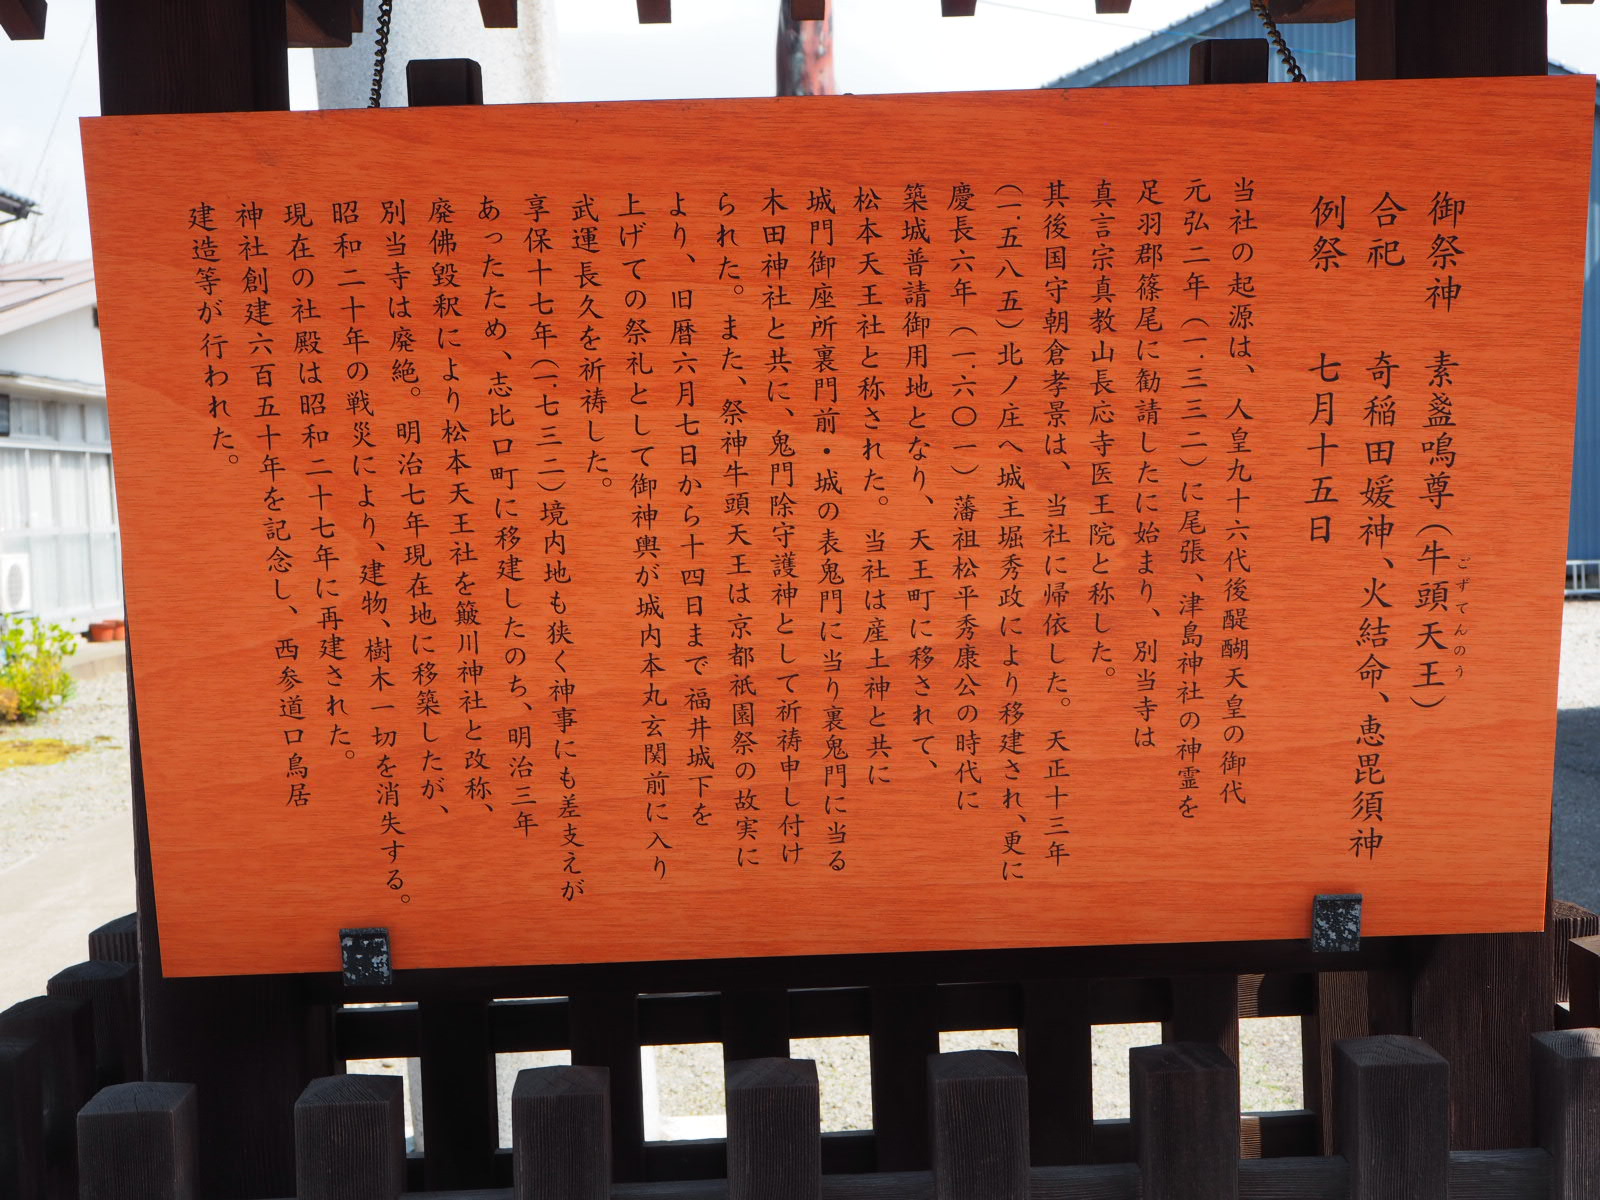 御祭神　素盞嗚尊（牛頭天王）
ごずてんのう
合祀　奇稲田媛神、火結命、恵毘須神
例祭　七月十五日
当社の起源は、人皇九十六代後醍醐天皇の御代
元弘二年（一.三三二）に尾張、津島神社の神霊を
足羽郡篠尾に勧請したに始まり、別当寺は
真言宗真教山長応寺医王院と称した。
其後国守朝倉孝景は、当社に帰依した。天正十三年
（一.五八五）北ノ庄へ城主堀秀政により移建され、更に
慶長六年（一.六〇一）藩祖松平秀康公の時代に
築城普請御用地となり、天王町に移されて、
松本天王社と称された。当社は産土神と共に
城門御座所裏門前・城の表鬼門に当り裏鬼門に当る
木田神社と共に、鬼門除守護神として祈祷申し付け
られた。また、祭神牛頭天王は京都祇園祭の故実に
より、旧暦六月七日から十四日まで福井城下を
上げての祭礼として御神輿が城内本丸玄関前に入り
武運長久を祈祷した。
享保十七年（一.七三二）境内地も狭く神事にも差支えが
あったため、志比口町に移建したのち、明治三年
廃佛毀釈により松本天王社を簸川神社と改称、
別当寺は廃絶。明治七年現在地に移築したが、
昭和二十年の戦災により、建物、樹木一切を消失する。
現在の社殿は昭和二十七年に再建された。
神社創建六百五十年を記念し、西参道口鳥居
建造等が行われた。